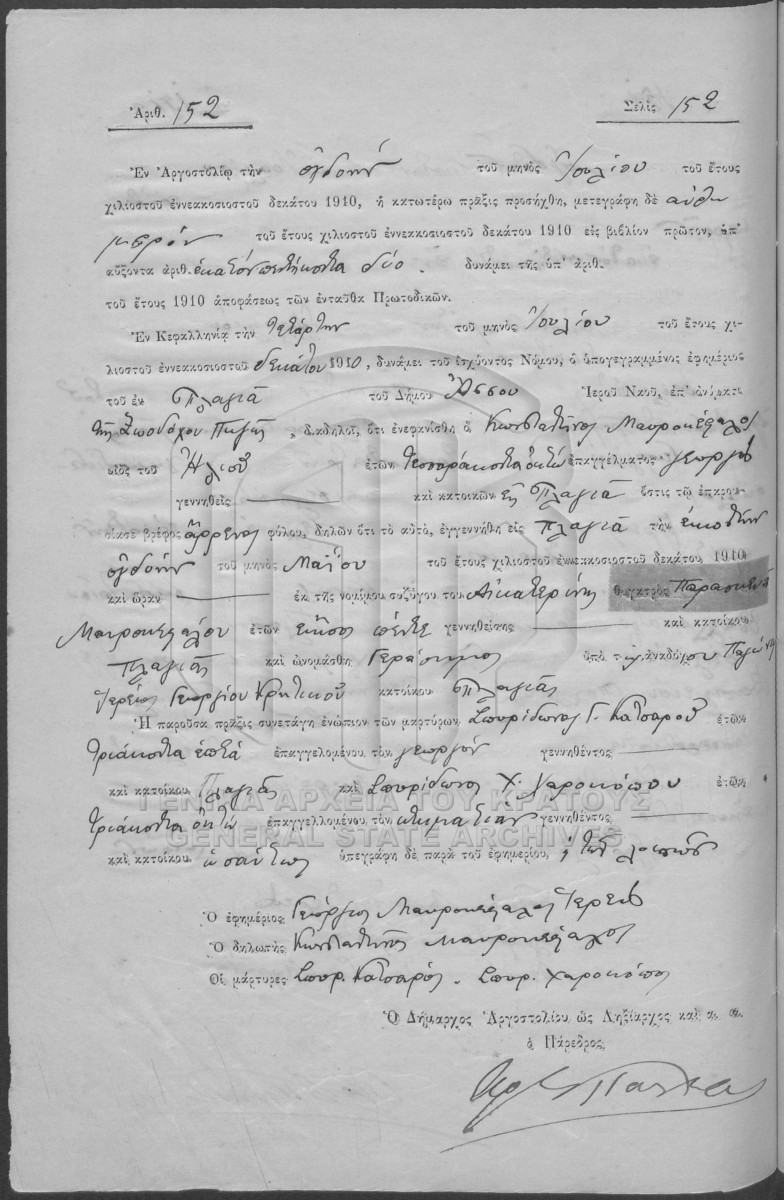 Ἀριθ. 152
Σελὶς 152
Ἐν Ἀργοστολίῳ τὴν ὀγδόην τοῦ μηνὸς Ἰουλίου τοῦ ἔτους
χιλιοστοῦ ἐννεακοσιοστοῦ δεκάτου 1910, ἡ κατωτέρω πρᾶξις προσήχθη, μετεγράφη δὲ αὐθη
μερὸν τοῦ ἔτους χιλιοστοῦ ἐννεακοσιοστοῦ δεκάτου 1910 εἰς βιβλίον πρῶτον, ὑπ'
αὔξοντα ἀριθ. ἑκατὸν πεντήκοντα δύο. δυνάμει τῆς ὑπ' ἀριθ.
τοῦ ἔτους 1910 ἀποφάσεως τῶν ἐνταῦθα Πρωτοδικῶν.
Ἐν Κεφαλληνίᾳ τὴν τετάρτην τοῦ μηνὸς Ἰουλίου τοῦ ἔτους χι-
λιοστοῦ ἐννεακοσιοστοῦ δεκάτου 1910, δυνάμει τοῦ ἰσχύοντος Νόμου, ὁ ὑπογεγραμμένος ἐφημέριος
τοῦ ἐν Πλαγιᾷ τοῦ Δήμου Ἄσσου Ἱεροῦ Ναοῦ, ἐπ' ὀνόματι
τῆς Ζωοδόχου Πηγῆς, διαδηλοῖ, ὅτι ἐνεφανίσθη ὁ Κωνσταντῖνος Μαυροκέφαλος
υἱὸς τοῦ Ἠλιοῦ ἐτῶν τεσσαράκοντα ὀκτὼ ἐπαγγέλματος γεωργὸς
γεννηθεὶς καὶ κατοικῶν εἰς Πλαγιὰ ὅστις τῷ ἐπαρου-
σίασε βρέφος ἄρρενος φύλου, δηλῶν ὅτι τὸ αὐτό, ἐγεννήθη εἰς Πλαγιὰ τὴν εἰκοστὴν
ὀγδόην τοῦ μηνὸς Μαΐου τοῦ ἔτους χιλιοστοῦ ἐννεακοσιοστοῦ δεκάτου 1910
καὶ ὥραν ἐκ τῆς νομίμου συζύγου του Αἰκατερίνης θυγατρὸς Παρασκευᾶ
Μαυροκεφάλου ἐτῶν εἴκοσι πέντε γεννηθείσης καὶ κατοίκου
Πλαγιᾶς καὶ ὠνομάσθη Γεράσιμος ὑπὸ τοῦ ἀναδόχου
Ἱερέως Γεωργίου Κρητικοῦ κατοίκου Πλαγιᾶς
Ἡ παροῦσα πρᾶξις συνετάγη ἐνώπιον τῶν μαρτύρων, Σπυρίδωνος Γ. Κατσαροῦ ἐτῶν
τριάκοντα ἑπτὰ ἐπαγγελομένου τὸν γεωργὸν γεννηθέντος
καὶ κατοίκου Πλαγιᾶς καὶ Σπυρίδωνος Χ. Χαροκόπου ἐτῶν
τριάκοντα ὀκτὼ ἐπαγγελλομένου τὸν κτηματίαν γεννηθέντος
καὶ κατοίκου ὡσαύτως ὑπεγράφη δὲ παρὰ τοῦ ἐφημερίου, τῶν λοιπῶν
Ὁ ἐφημέριος Γεώργιος Μαυροκέφαλος Ἱερεὺς
Ὁ δηλωτὴς Κωνσταντῖνος Μαυροκέφαλος
Οἱ μάρτυρες Σπυρ. Κατσαρός. Σπυρ. Χαροκόπος
Ὁ Δήμαρχος Ἀργοστολίου ὡς Ληξίαρχος καὶ α. α.
ὁ Πάρεδρος
ΓΕΝΙΚΑ ΑΡΧΕΙΑ ΤΟΥ ΚΡΑΤΟΥΣ
GENERAL STATE ARCHIVES